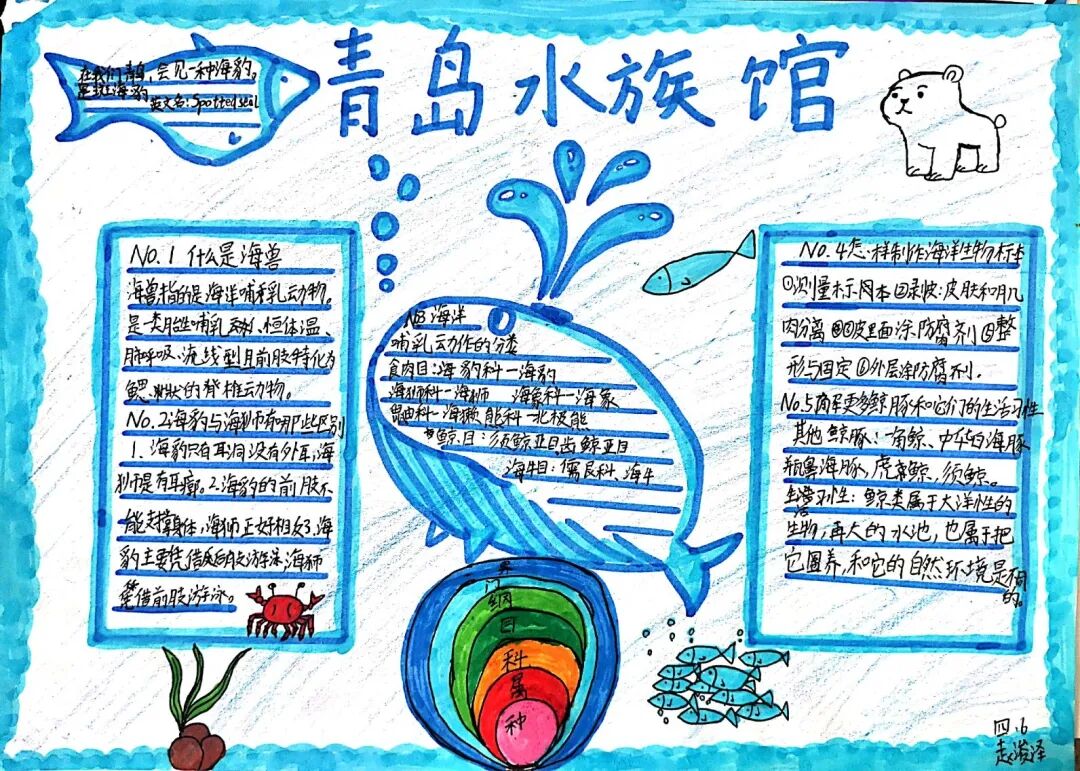 青岛水族馆
在我们青岛，会见一种海豹。
是斑海豹
英文名：Spotted seal
No.1 什么是海兽
海兽指的是海洋哺乳动物。
是一类胎生哺乳、恒体温、
肺呼吸、流线型且前肢特化为
鳍状的脊椎动物。
No.2 海豹与海狮有哪些区别
1、海豹只有耳洞没有外耳，海
狮是有耳廓。2.海豹的前肢不
能支撑身体，海狮正好相反3、海
豹主要凭借后肢游泳海狮
凭借前肢游泳。
No3 海洋
哺乳动作的分类
食肉目：海豹科一海豹
海狮科一海狮 海象科一海象
鼬科一海獭 能科一北极能
鲸目：须鲸亚目，齿鲸亚目
海牛目：儒艮科、海牛
界
门
纲
目
科
属
种
No.4 怎样制作海洋生物标本
①测量标本②录皮：皮肤和肌
肉分离③皮里面涂防腐剂④整
形与固定⑤外层涂防腐剂.
No.5 海豚和它们的生活习性
其他鲸豚：一角鲸、中华白海豚
瓶鼻海豚、虎鲸、须鲸。
生活习性：鲸类属于大洋性的
生物，再大的水池，也属于把
它圈养，和它的自然环境是不同
的。
四.6
赵浚泽